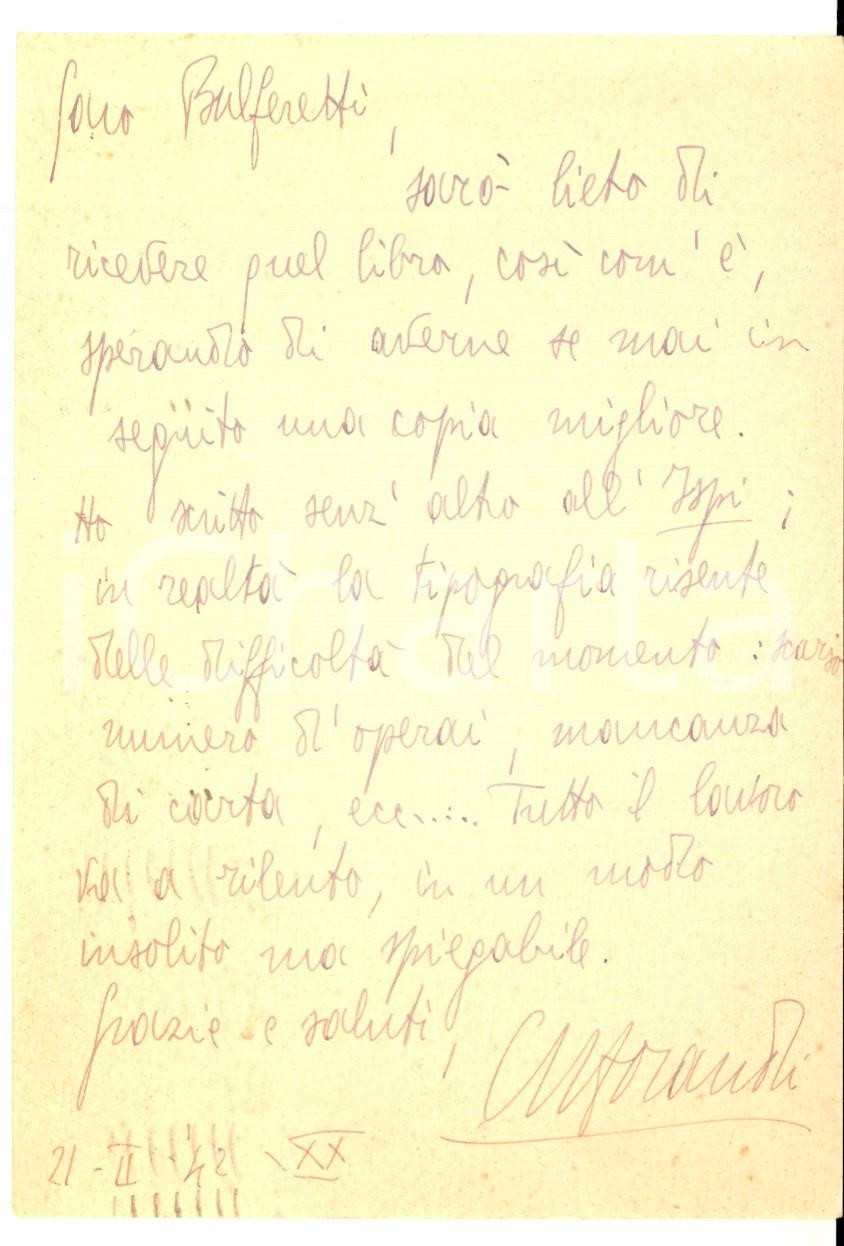 Caro Bulferetti,
sarò lieto di
ricevere quel libro, così com'è,
sperando di averne se mai in
seguito una copia migliore.
Ho scritto senz'altro all'Ispi;
in realtà la tipografia risente
delle difficoltà del momento: scarso
numero d'operai, mancanza
di carta, ecc..... Tutto il lavoro
va a rilento, in un modo
insolito ma spiegabile.
Grazie e saluti,
CMorandi
21-II-42 XX
iCharta